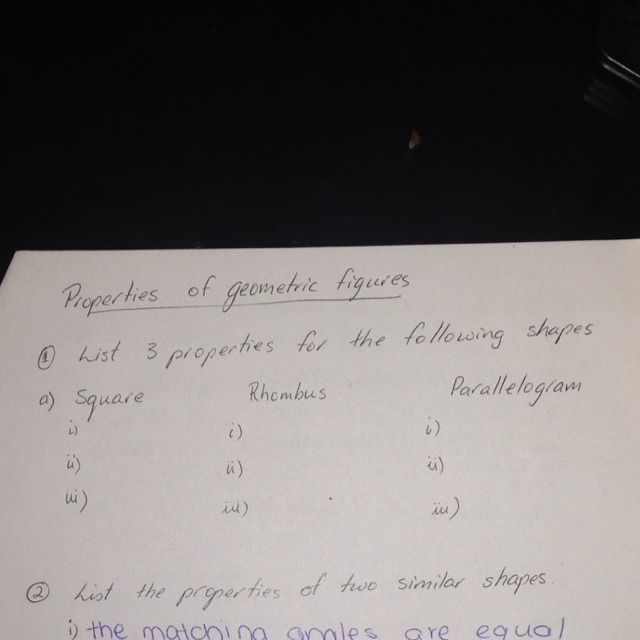 Properties of geometric figures
① List 3 properties for the following shapes
a) Square Rhombus Parallelogram
i) i) i)
ii) ii) ii)
iii) iii) iii)
② List the properties of two similar shapes.
i) the matching angles are equal